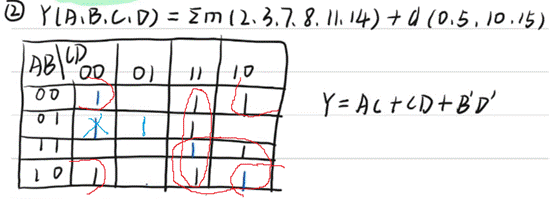 ② Y(A.B.C.D) = Σm(2.3.7.8.11.14) + d(0.5.10.15)
AB\CD 00 01 11 10
00 1 1 1
01 1 1 1
11 1 1
10 1 1 1
Y = AC + CD + B'D'